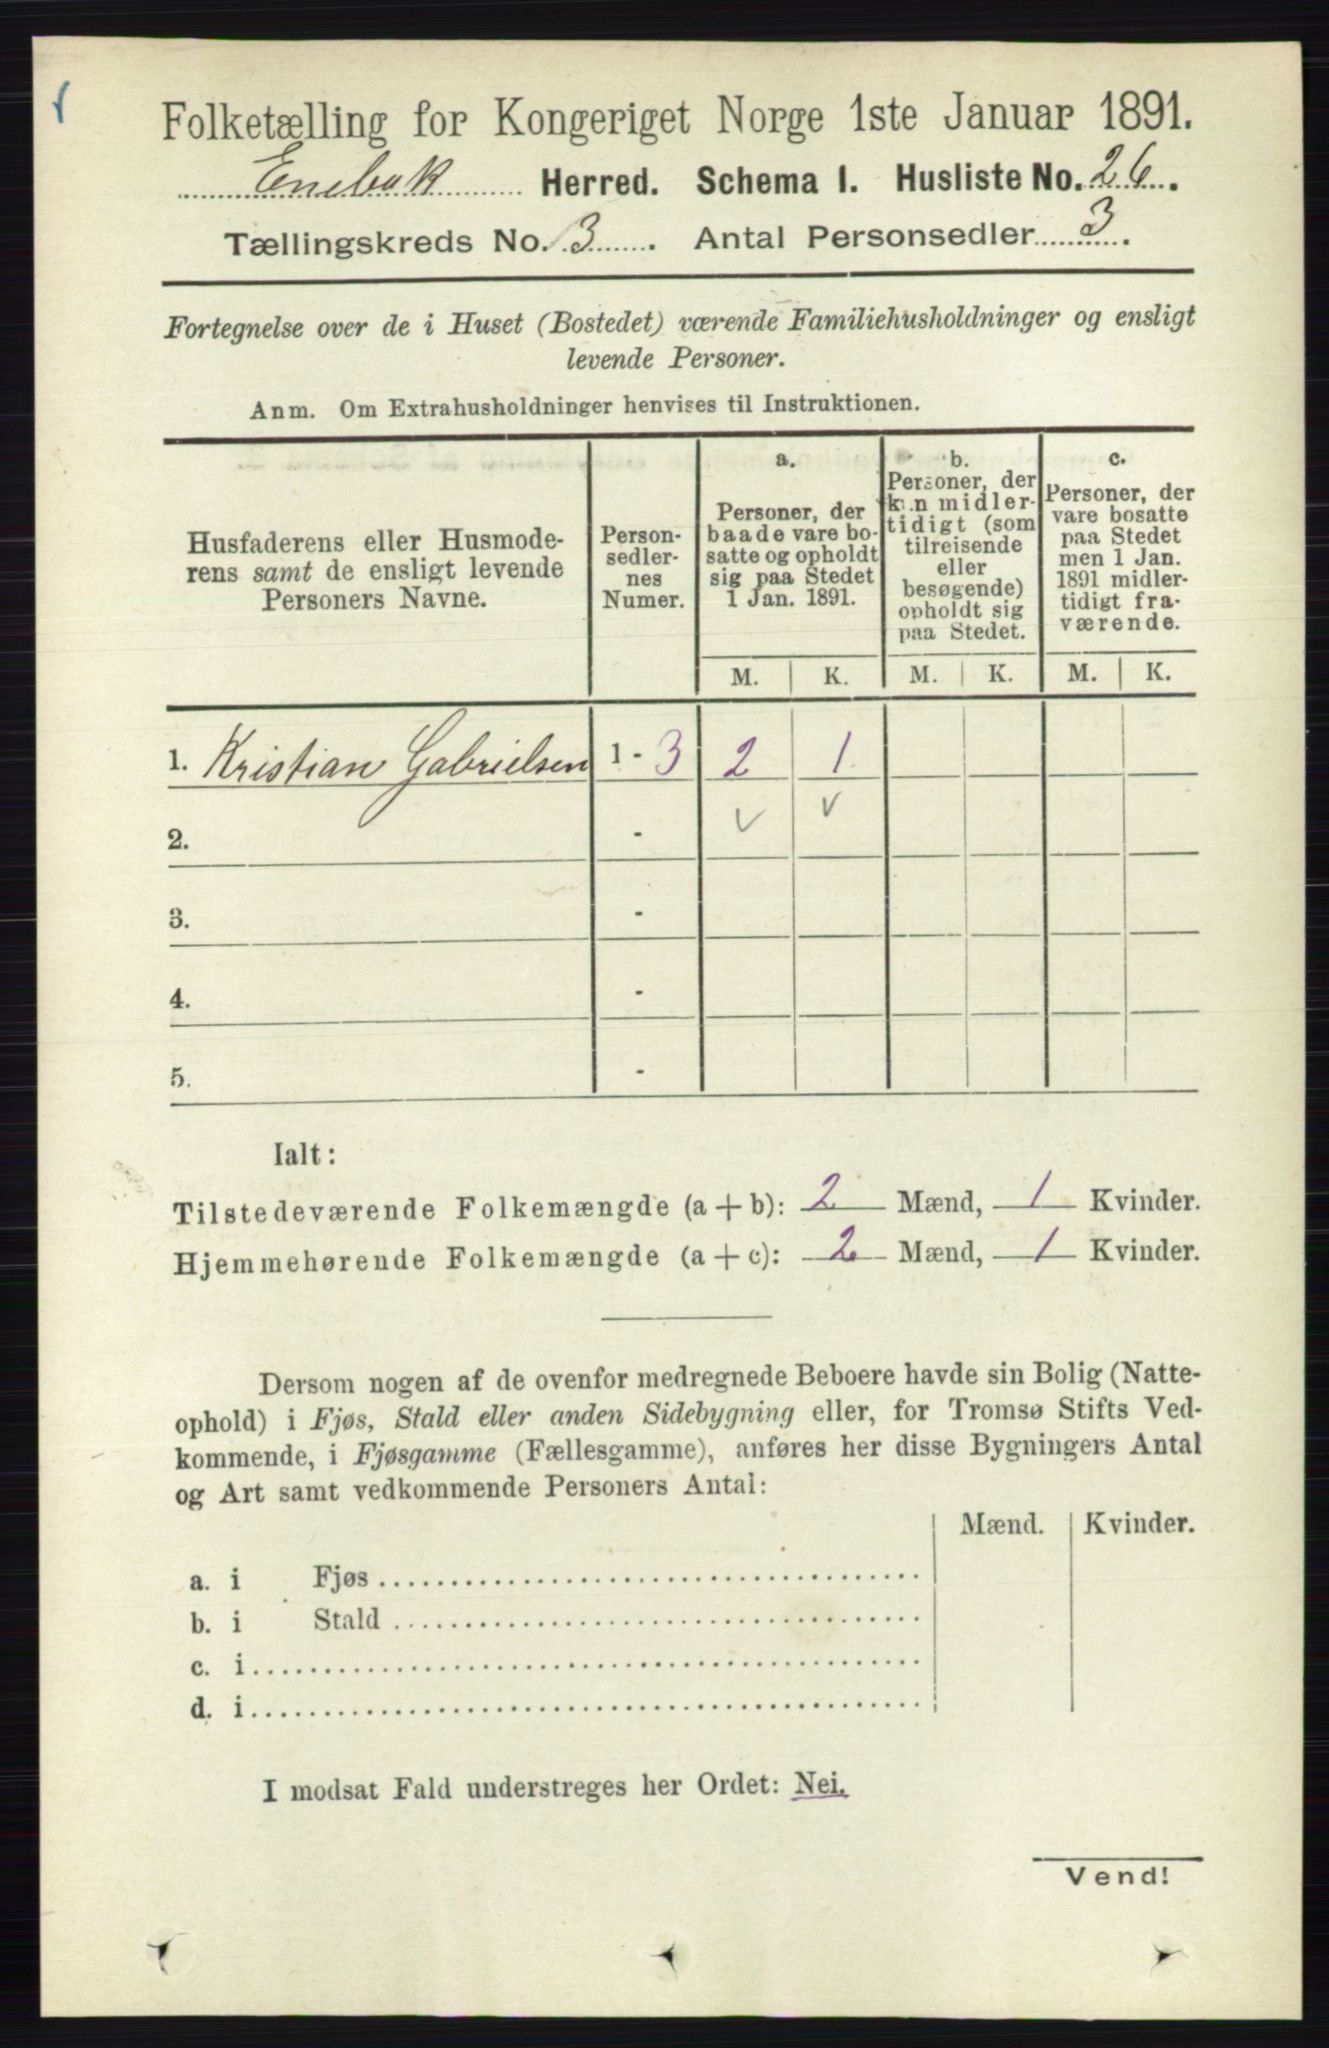 Folketælling for Kongeriget Norge 1ste Januar 1891.
Enebak Herred. Schema 1. Husliste No. 26.
Tællingskreds No. 3. Antal Personsedler 3.
Fortegnelse over de i Huset (Bostedet) værende Familiehusholdninger og ensligt
levende Personer.
Anm. Om Extrahusholdninger henvises til Instruktionen.
Husfaderens eller Husmode-
rens samt de ensligt levende
Personers Navne.
Person-
sedler-
nes
Numer.
a.
Personer, der
baade vare bo-
satte og opholdt
sig paa Stedet
1 Jan. 1891.
b.
Personer, der
kun midler-
tidigt (som
tilreisende
eller
besøgende)
opholdt sig
paa Stedet.
c.
Personer, der
vare bosatte
paa Stedet
men 1 Jan.
1891 midler-
tidigt fra-
værende.
M. K. M. K. M. K.
1. Kristian Gabrielsen 1 - 3 2 1
2. -
3. -
4. -
5. -
Ialt:
Tilstedeværende Folkemængde (a + b): 2 Mænd, 1 Kvinder.
Hjemmehørende Folkemængde (a + c): 2 Mænd, 1 Kvinder.
Dersom nogen af de ovenfor medregnede Beboere havde sin Bolig (Natte-
ophold) i Fjøs, Stald eller anden Sidebygning eller, for Tromsø Stifts Ved-
kommende, i Fjøsgamme (Fællesgamme), anføres her disse Bygningers Antal
og Art samt vedkommende Personers Antal:
Mænd. Kvinder.
a. i Fjøs
b. i Stald
c. i
d. i
I modsat Fald understreges her Ordet: Nei.
Vend!